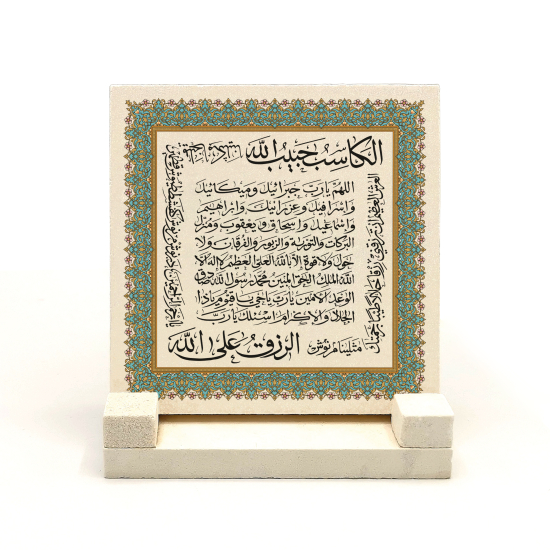 الكاسب حبيب الله
اللهم يا رب جبرائيل وميكائيل
واسرافيل وعزرائيل وابراهيم
واسماعيل واسحاق ويعقوب ومنزل
البركات والتورية والزبور والفرقان ولا
حول ولا قوة الا بالله العلي العظيم لا اله الا
الله الملك الحق المبين محمد رسول الله صادق
الوعد الامين يا رب يا حي يا قيوم يا ذا
الجلال والاكرام اسئلك يا رب
العرش العظيم ان ترزقني رزقا حلالا طيبا برحمتك
يا ارحم الراحمين
الرزق على الله